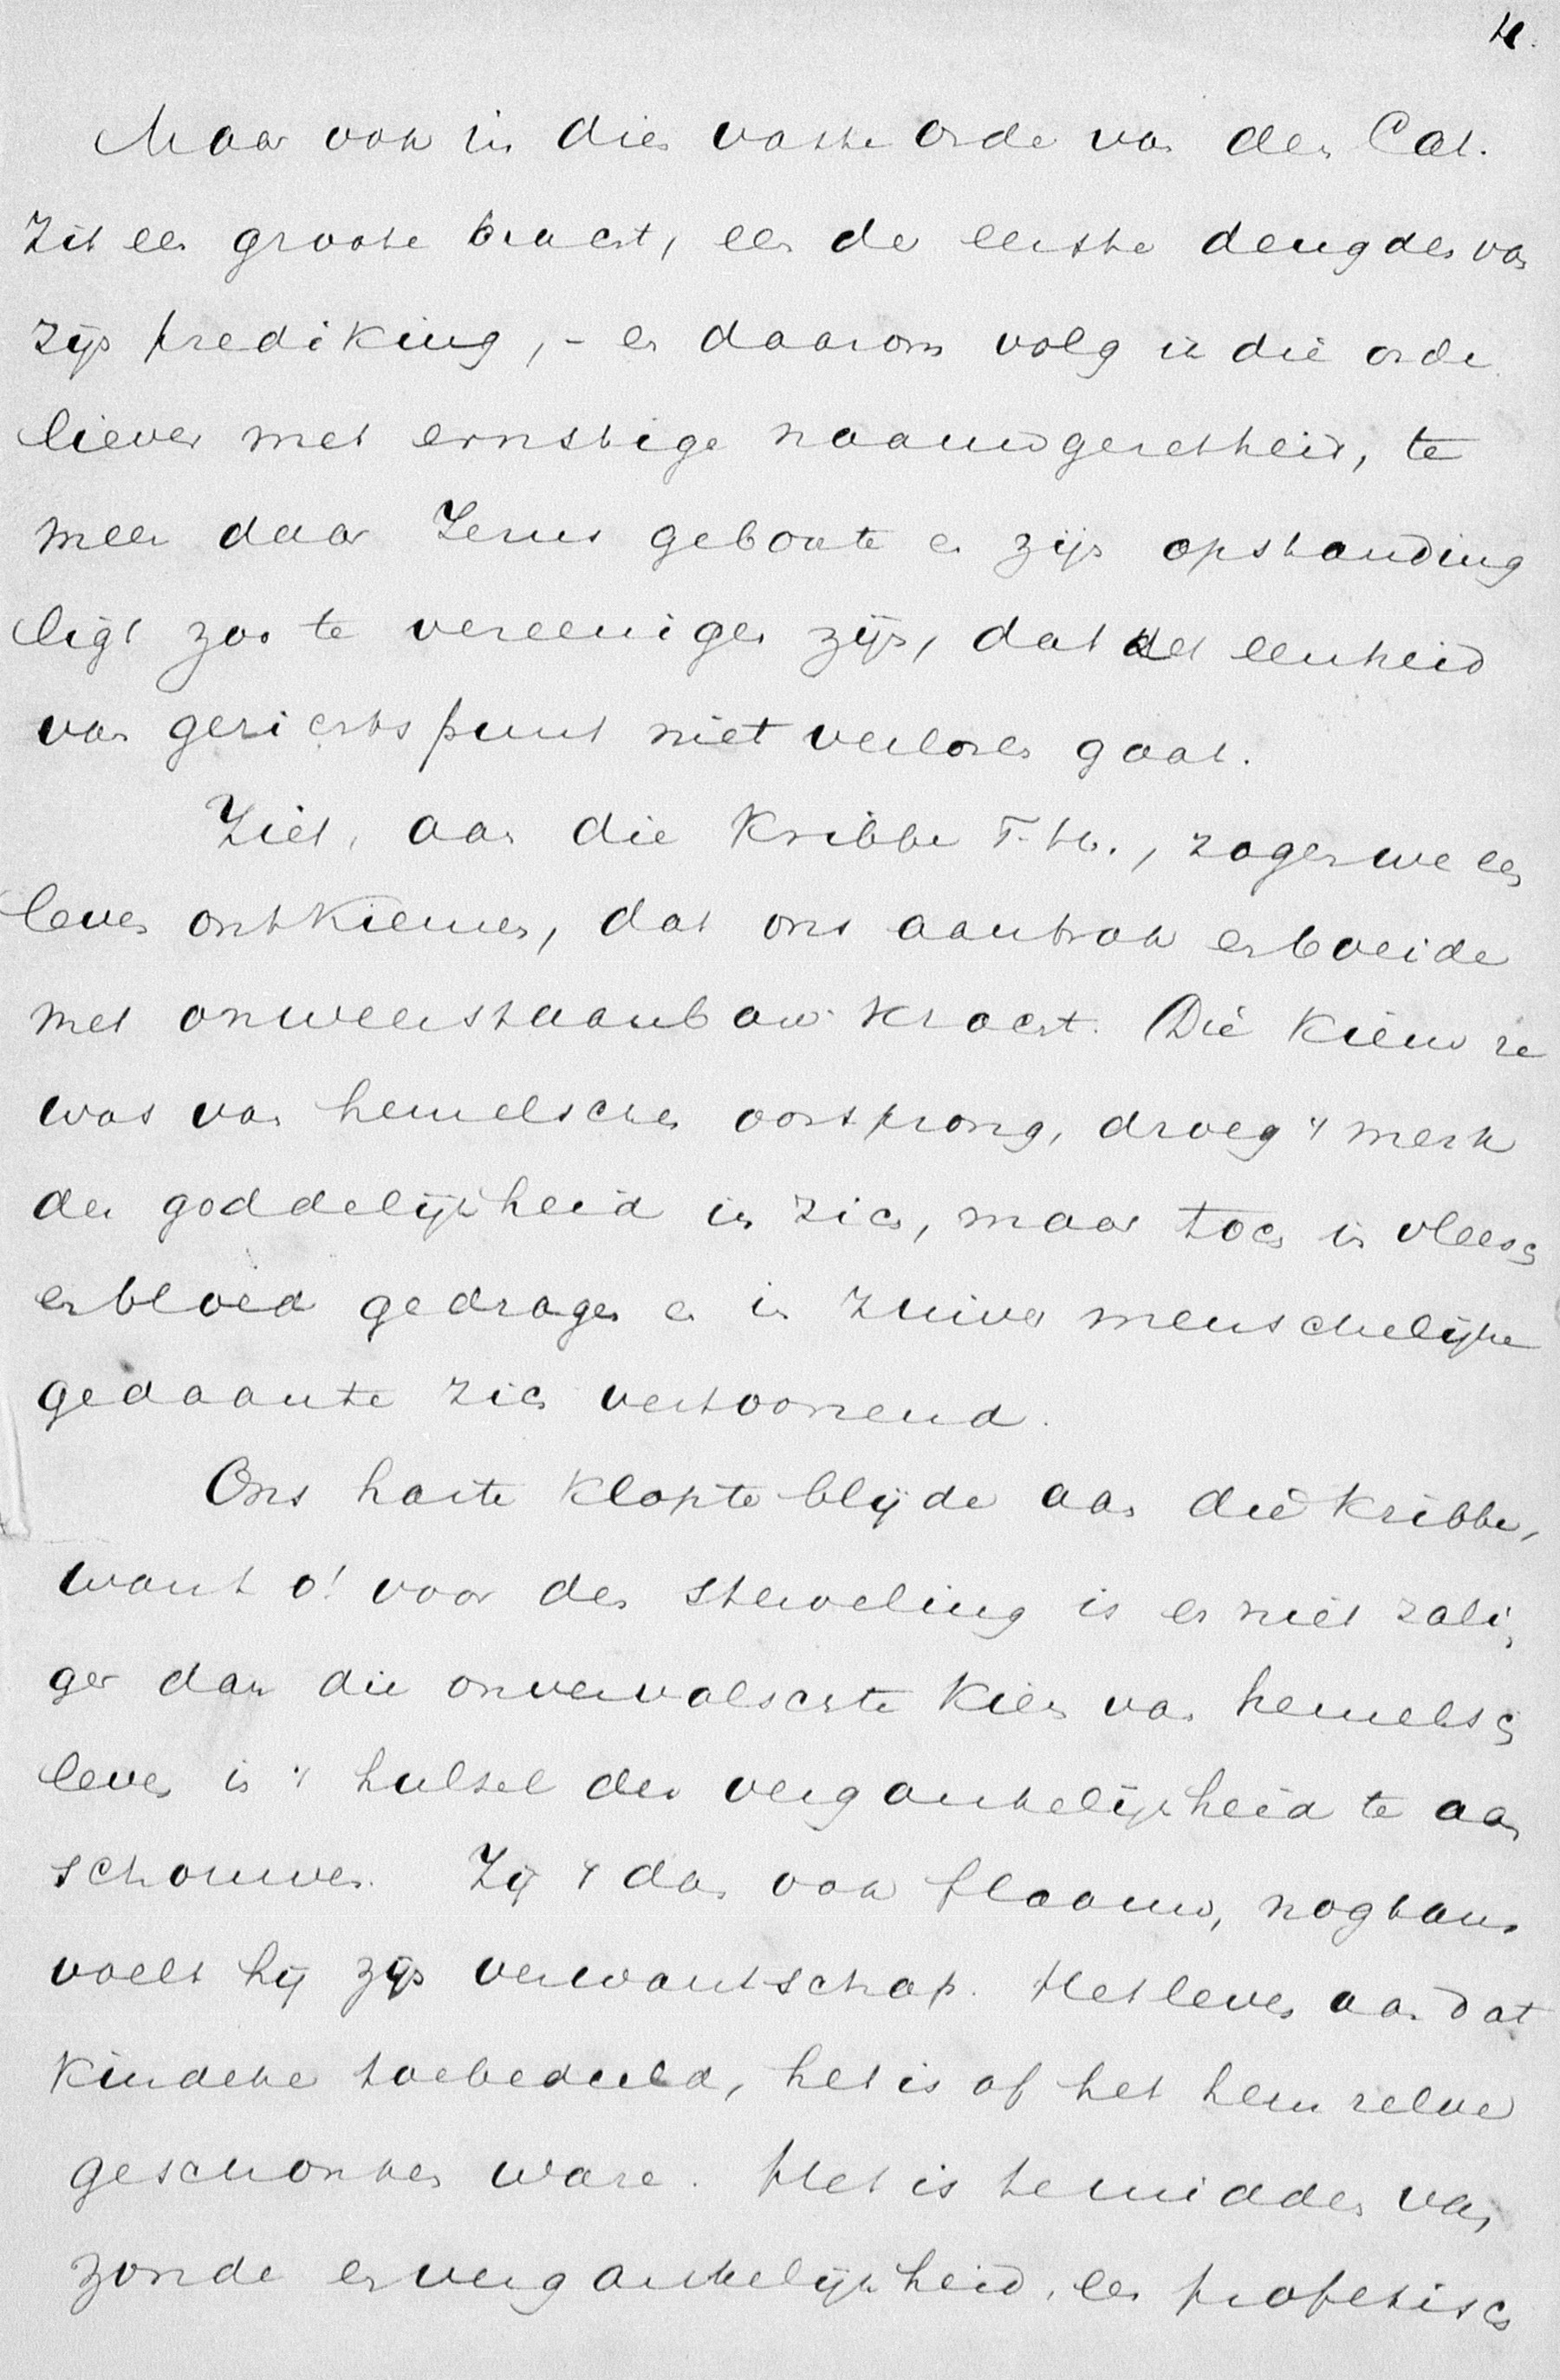 4.
Maar ook in die vaste orde van den Cat.
zit een groote kracht, een de eerste deugden van
zijn prediking, - en daarom volg ik die orde
liever met ernstige naauwgezetheid, te
meer daar Jezus geboorte en zijn opstanding
ligt zoo te vereenigen zijn, dat de eenheid
van gezichtspunt niet verloren gaat.
Ziet, aan die kribbe T. H., zagen we een
leven ontkiemen, dat ons aantrok en boeide
met onweerstaanbare kracht. Die kiem
was van hemelschen oorsprong, droeg 't merk
der goddelijkheid in zich, maar toch in vleesch
en bloed gedragen en in zuiver menschelijke
gedaante zich vertoonend.
Ons harte klopte blijde aan die kribbe,
want o! voor den sterveling is er niet zali„
ger dan die onvervalschte kiem van hemelsch
leven in 't hulsel der vergankelijkheid te aan
schouwen. Zij 't dan ook flaauw, nogtans
voelt hij zijn verwantschap. Het leven aan dat
kindeke toebedeeld, het is of het hem zelve
geschonken ware. Het is te midden van
zonde en vergankelijkheid, een profetisch